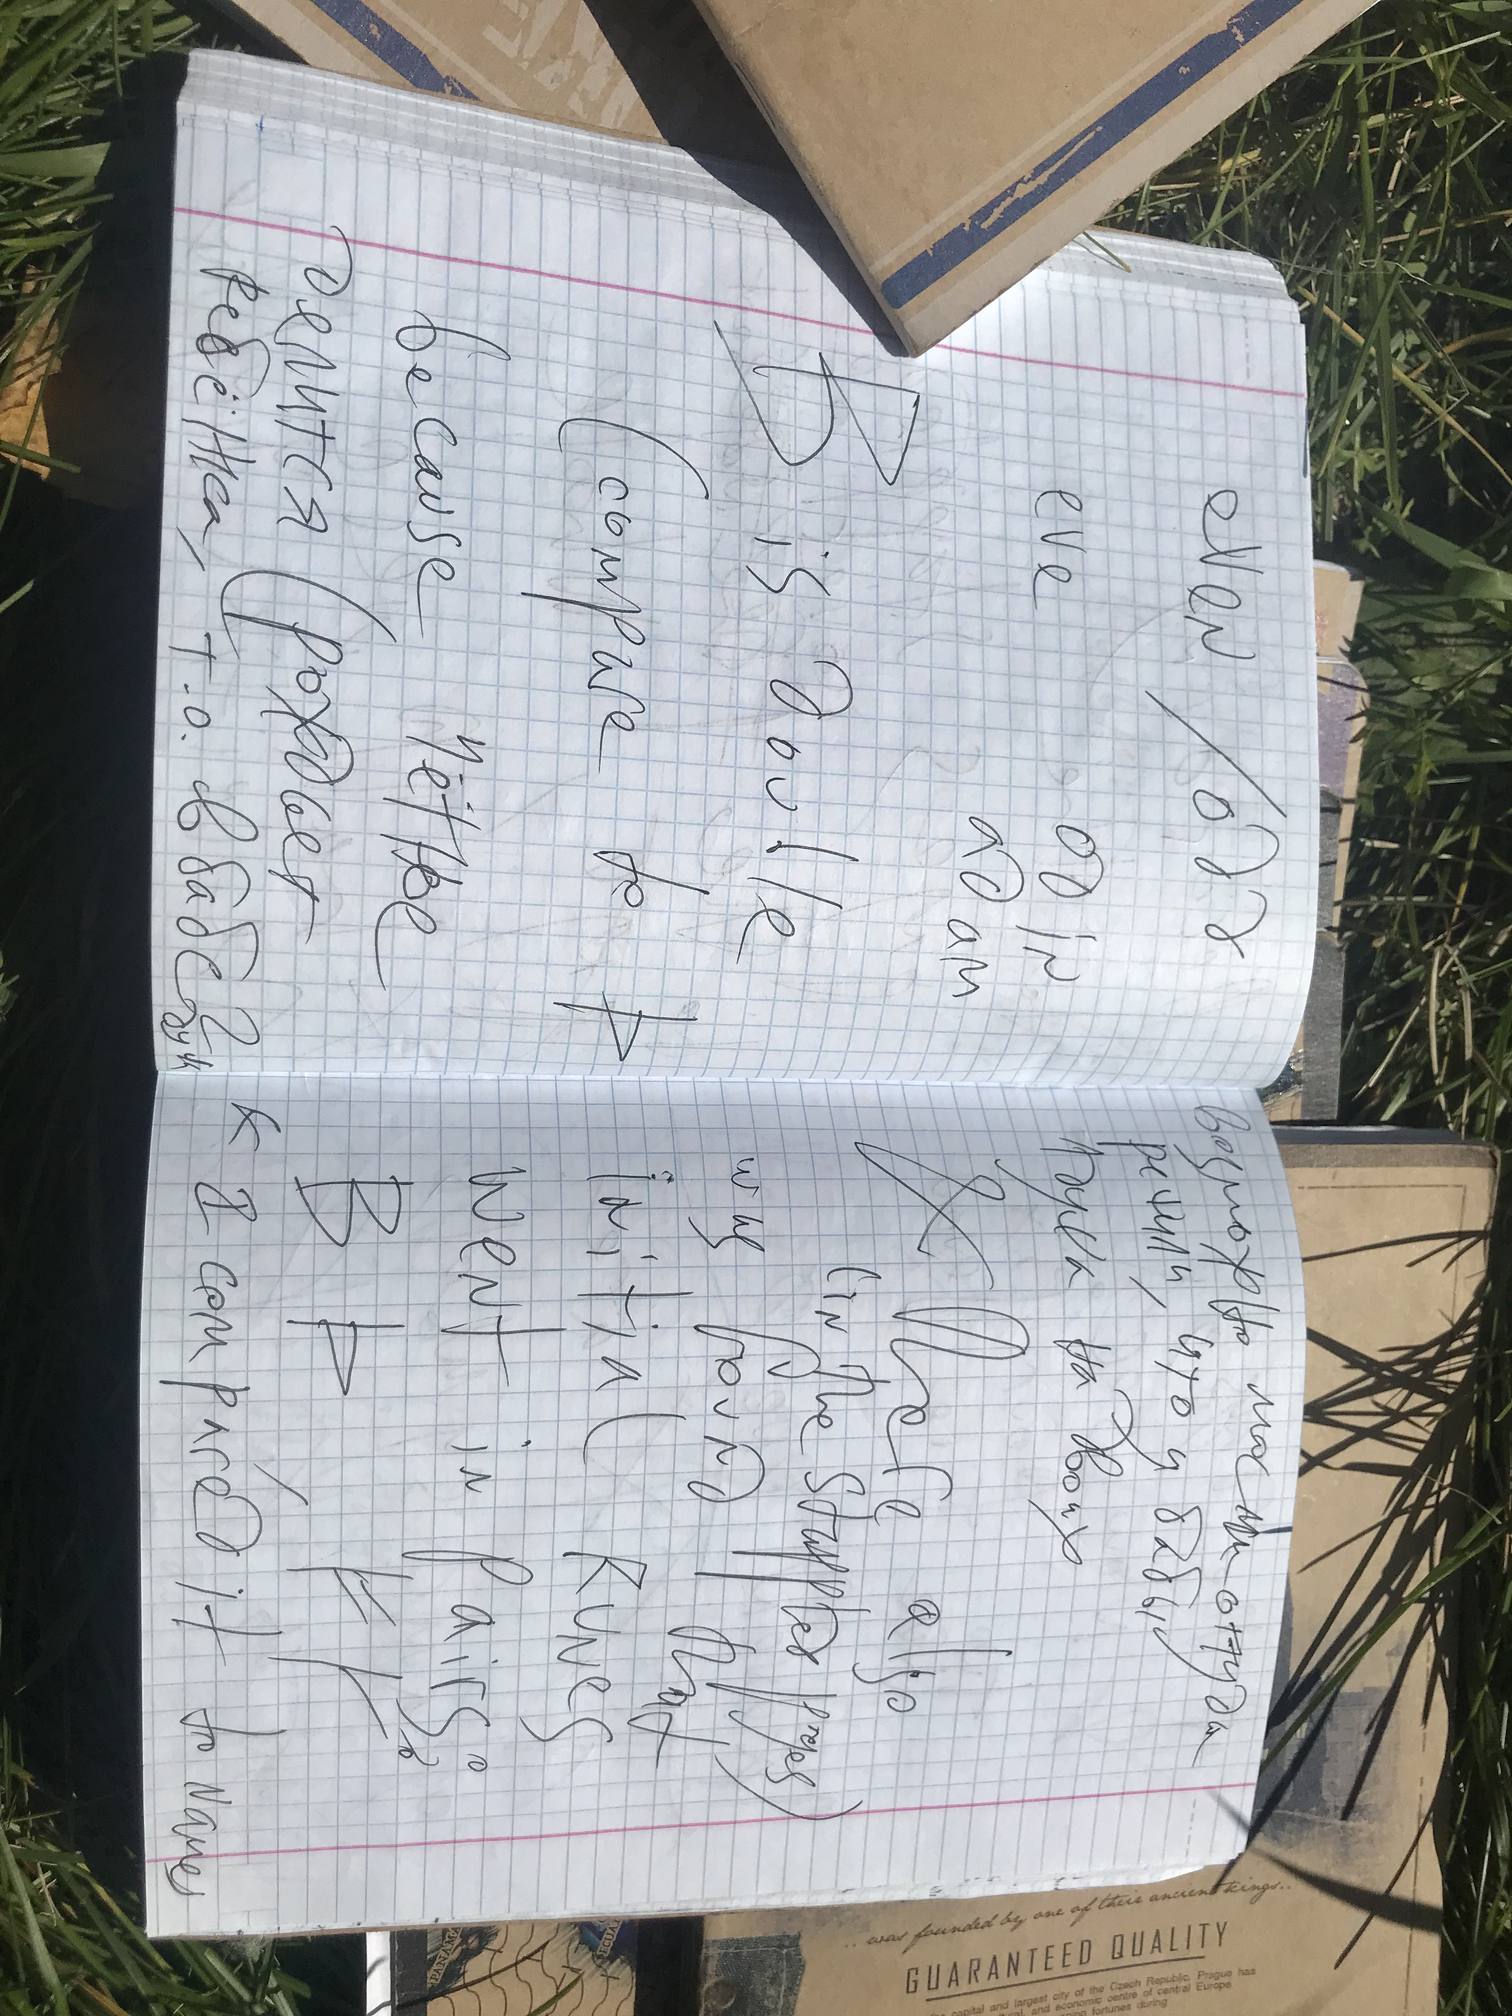 even / odd
eve odin
adam
B is double
(compare to þ
because чётное
делится (рождает
ребёнка, т.о. в бабе 2
возможно мосты откуда
решили, что у бабы
душа на двоих
& there also
(in the stuppted pages)
way found that
initial Runes
went in pairs:
B Þ,
K I compared it to Names
.. was founded by one of their ancient kings..
GUARANTEED QUALITY
capital and largest city of the Czech Republic. Prague has
and economic centre of central Europe
fortunes during
PANAMA